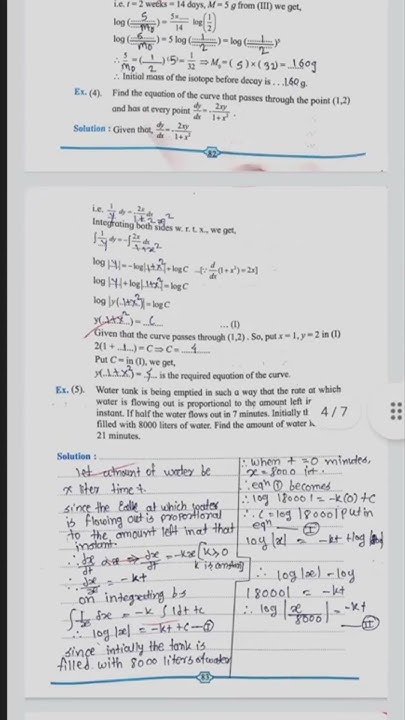 i.e. t = 2 weeks = 14 days, M = 5 g from (III) we get,
log (5/m₀) = 5x.../14 log(1/2)
log (5/m₀) = 5 log (1/2) = log (1/2)⁵
∴ 5/m₀ = (1/2)⁵ = 1/32 ⇒ M₀ = (5) × (32) = 160 g
∴ Initial mass of the isotope before decay is ..160 g.
Ex. (4). Find the equation of the curve that passes through the point (1,2)
and has at every point dy/dx = - 2xy/1+x² .
Solution : Given that, dy/dx = - 2xy/1+x²
82
i.e. 1/y dy = - 2x/1+x² dx
Integrating both sides w. r. t. x., we get,
∫ 1/y dy = -∫ 2x/1+x² dx
log |y| = - log|1+x²| + log C ...[∵ d/dx (1 + x²) = 2x]
log |y| + log |1+x²| = log C
log |y(1+x²)| = log C
y(1+x²) = C ... (I)
Given that the curve passes through (1,2) . So, put x = 1, y = 2 in (I)
2(1 + ..1...) = C ⇒ C = ....4....
Put C = in (I), we get,
y(1+x²) = 4 is the required equation of the curve.
Ex. (5). Water tank is being emptied in such a way that the rate at which
water is flowing out is proportional to the amount left in
instant. If half the water flows out in 7 minutes. Initially th
filled with 8000 liters of water. Find the amount of water
21 minutes.
4 / 7
Solution :
Let amount of water be
x liter time t.
since the at which water
is flowing out is proportional
to the amount left in at that
instant.
∴ dx/dt ⇒ dx/dt = -kx [k>0
k is constant]
∴ dx/x = -kt
on integrating bs
∫ 1/x dx = -k ∫ 1dt + c
∴ log |x| = -kt + c — ①
since intially the tank is
filled with 8000 liters of water
∴ when t = 0 minutes,
x = 8000 lit.
∴ eqⁿ ① becomes
∴ log |8000| = -k(0) + c
∴ c = log |8000| put in
eqⁿ — ①
log |x| = -kt + log
∴ log |x| - log
|8000| = -kt
∴ log |x/8000| = -kt
— ②
83